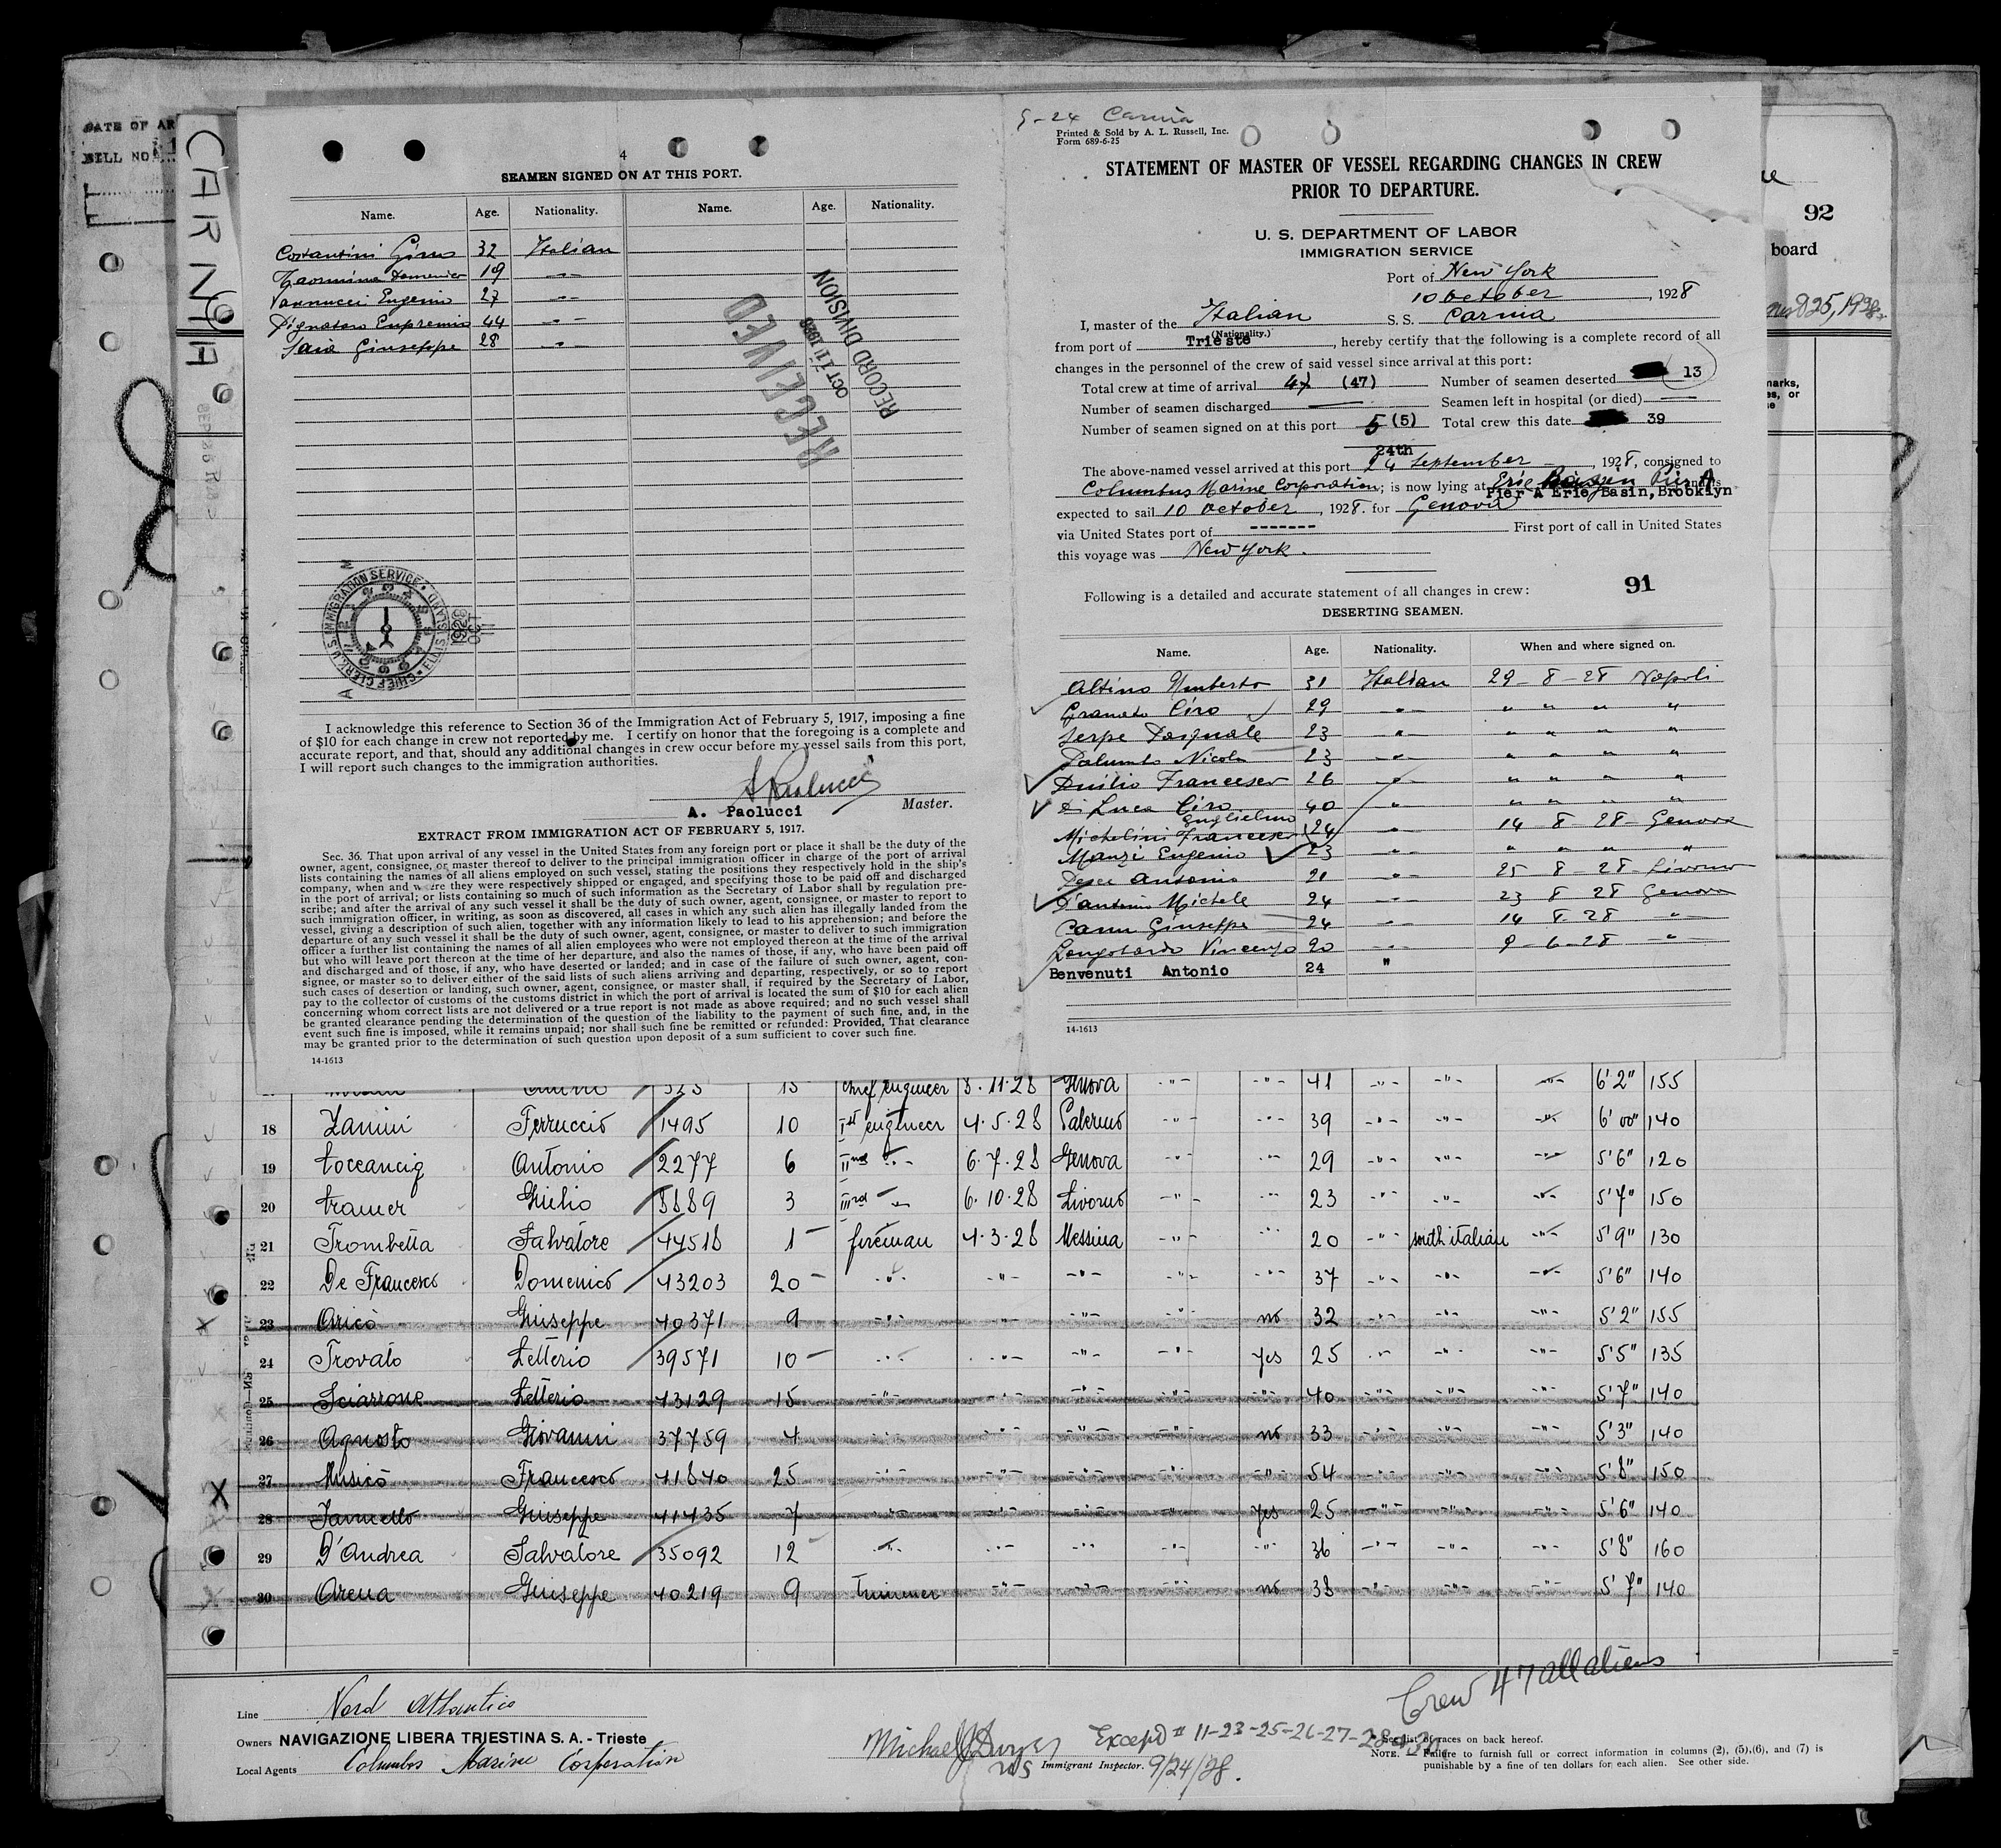 DATE OF AR
BILL NO.
CARNIA
4
SEAMEN SIGNED ON AT THIS PORT.
Name. Age. Nationality. Name. Age. Nationality.
Costantini 32 Italian
Taormina Domenico 19 -"-
Vannucci Eugenio 27 -"-
Pignataro Eupremio 44 -"-
Saia Giuseppe 28 -"-
RECEIVED
OCT 11 1928
RECORD DIVISION
CHIEF CLERK U.S. IMMIGRATION SERVICE • ELLIS ISLAND
A M
I acknowledge this reference to Section 36 of the Immigration Act of February 5, 1917, imposing a fine
of $10 for each change in crew not reported by me. I certify on honor that the foregoing is a complete and
accurate report, and that, should any additional changes in crew occur before my vessel sails from this port,
I will report such changes to the immigration authorities.
A Paolucci
A. Paolucci Master.
EXTRACT FROM IMMIGRATION ACT OF FEBRUARY 5, 1917.
Sec. 36. That upon arrival of any vessel in the United States from any foreign port or place it shall be the duty of the
owner, agent, consignee, or master thereof to deliver to the principal immigration officer in charge of the port of arrival
lists containing the names of all aliens employed on such vessel, stating the positions they respectively hold in the ship's
company, when and where they were respectively shipped or engaged, and specifying those to be paid off and discharged
in the port of arrival; or lists containing so much of such information as the Secretary of Labor shall by regulation pre-
scribe; and after the arrival of any such vessel it shall be the duty of such owner, agent, consignee, or master to report to
such immigration officer, in writing, as soon as discovered, all cases in which any such alien has illegally landed from the
vessel, giving a description of such alien, together with any information likely to lead to his apprehension; and before the
departure of any such vessel it shall be the duty of such owner, agent, consignee, or master to deliver to such immigration
officer a further list containing the names of all alien employees who were not employed thereon at the time of the arrival
but who will leave port thereon at the time of her departure, and also the names of those, if any, who have been paid off
and discharged and of those, if any, who have deserted or landed; and in case of the failure of such owner, agent, con-
signee, or master so to deliver either of the said lists of such aliens arriving and departing, respectively, or so to report
such cases of desertion or landing, such owner, agent, consignee, or master shall, if required by the Secretary of Labor,
pay to the collector of customs of the customs district in which the port of arrival is located the sum of $10 for each alien
concerning whom correct lists are not delivered or a true report is not made as above required; and no such vessel shall
be granted clearance pending the determination of the question of the liability to the payment of such fine, and, in the
event such fine is imposed, while it remains unpaid; nor shall such fine be remitted or refunded: Provided, That clearance
may be granted prior to the determination of such question upon deposit of a sum sufficient to cover such fine.
14-1613
9-24 Carnia
Printed & Sold by A. L. Russell, Inc.
Form 689-6-25
STATEMENT OF MASTER OF VESSEL REGARDING CHANGES IN CREW
PRIOR TO DEPARTURE.
U. S. DEPARTMENT OF LABOR
IMMIGRATION SERVICE
Port of New York
10 October, 1928
I, master of the Italian S. S. Carnia
(Nationality.)
from port of Trieste, hereby certify that the following is a complete record of all
changes in the personnel of the crew of said vessel since arrival at this port:
Total crew at time of arrival 47 (47) Number of seamen deserted 13
Number of seamen discharged — Seamen left in hospital (or died) —
Number of seamen signed on at this port 5 (5) Total crew this date 39
24th
The above-named vessel arrived at this port 24 September, 1928, consigned to
Columbus Marine Corporation; is now lying at Erie Basin Pier A
Pier A Erie Basin, Brooklyn
expected to sail 10 October, 1928. for Genova
via United States port of ------- First port of call in United States
this voyage was New York.
91
Following is a detailed and accurate statement of all changes in crew:
DESERTING SEAMEN.
Name. Age. Nationality. When and where signed on.
Altino Umberto 31 Italian 29-8-28 Napoli
Granato Ciro 29 -"- " " " "
Serpe Pasquale 23 -"- " " " "
Palumbo Nicola 23 -"- " " " "
Duilio Francesco 26 -"- " " " "
Di Luca Ciro 40 -"- " " " "
Guglielmo
Michelini Francesco 24 -"- 14-8-28- Genova
Manzi Eugenio 23 -"- " " " "
Pesce Antonio 21 -"- 25-8-28- Livorno
D'antonio Michele 24 -"- 23 8 28 Genova
Cann Giuseppe 24 " 14 8-28 -"-
Longobardo Vincenzo 20 -"- 9-6-28 -"-
Benvenuti Antonio 24 "
14-1613
92
board
marks,
es, or
se
chief engineer 3.11.28 Genova -"- -"- 41 -"- -"- -"- 6'2" 155
18 Zanini Ferruccio 1495 10 Ist engineer 4.5.28 Palermo -"- -"- 39 -"- -"- -"- 6'00" 140
19 Coccancig Antonio 2277 6 IInd -"- 6.7.28 Genova -"- -"- 29 -"- -"- -"- 5'6" 120
20 Cramer Giulio 8889 3 IIIrd -"- 6.10.28 Livorno -"- -"- 23 -"- -"- -"- 5'7" 150
21 Trombetta Salvatore 44518 1 fireman 4.3.28 Messina -"- -"- 20 -"- south italian -"- 5'9" 130
22 De Francesco Domenico 43203 20 -"- -"- -"- -"- -"- 37 -"- -"- -"- 5'6" 140
23 Aricò Giuseppe 40371 9 -"- -"- -"- no 32 -"- -"- -"- 5'2" 155
24 Trovato Letterio 39571 10 -"- -"- -"- -"- yes 25 -"- -"- -"- 5'5" 135
25 Sciarrone Letterio 43129 15 -"- -"- -"- -"- -"- 40 -"- -"- -"- 5'7" 140
26 Agnosto Giovanni 37759 4 -"- -"- -"- -"- no 33 -"- -"- -"- 5'3" 140
27 Musicò Francesco 41840 25 -"- -"- -"- -"- -"- 54 -"- -"- -"- 5'8" 150
28 Iannello Giuseppe 41435 7 -"- -"- -"- -"- yes 25 -"- -"- -"- 5'6" 140
29 D'Andrea Salvatore 35092 12 -"- -"- -"- -"- -"- 36 -"- -"- -"- 5'8" 160
30 Arena Giuseppe 40219 9 trimmer -"- -"- -"- no 38 -"- -"- -"- 5'7" 140
Crew 47 all aliens
Line Nord Atlantico
Owners NAVIGAZIONE LIBERA TRIESTINA S. A. - Trieste
Local Agents Columbos Marine Corporation
Michael J Dwyer Except # 11-23-25-26-27-28-30
Immigrant Inspector. 9/24/28.
See list of races on back hereof.
NOTE.—Failure to furnish full or correct information in columns (2), (5), (6), and (7) is
punishable by a fine of ten dollars for each alien. See other side.